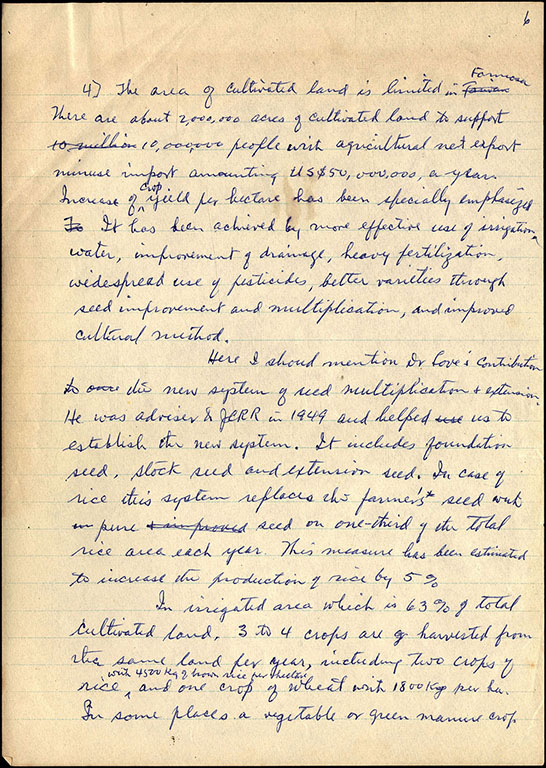 6
4) The area of cultivated land is limited in Taiwan Formosa
There are about 2,000,000 acres of cultivated land to support
10 million 10,000,000 people with agricultural net export
minuse import amounting US$50,000,000, a year.
Increase of crop yield per hectare has been specially emphasized
To It has been achieved by more effective use of irrigation
water, improvement of drainage, heavy fertilization,
widespread use of pesticides, better varieties through
seed improvement and multiplication, and improved
cultural method.
Here I shoud mention Dr Love's Contribution
to our the new system of seed multiplication & extension.
He was adviser to JCRR in 1949 and helped use us to
establish the new system. It includes foundation
seed, stock seed and extension seed. In case of
rice this system replaces the farmer's seed with
in pure & improved seed on one-third of the total
rice area each year. This measure has been estimated
to increase the production of rice by 5%
In irrigated area which is 63% of total
cultivated land, 3 to 4 crops are harvested from
the same land per year, including two crops of
with 4500 Kg of brown rice per hectare
rice, and one crop of wheat with 1800 Kg per ha.
In some places a vegetable or green manure crop